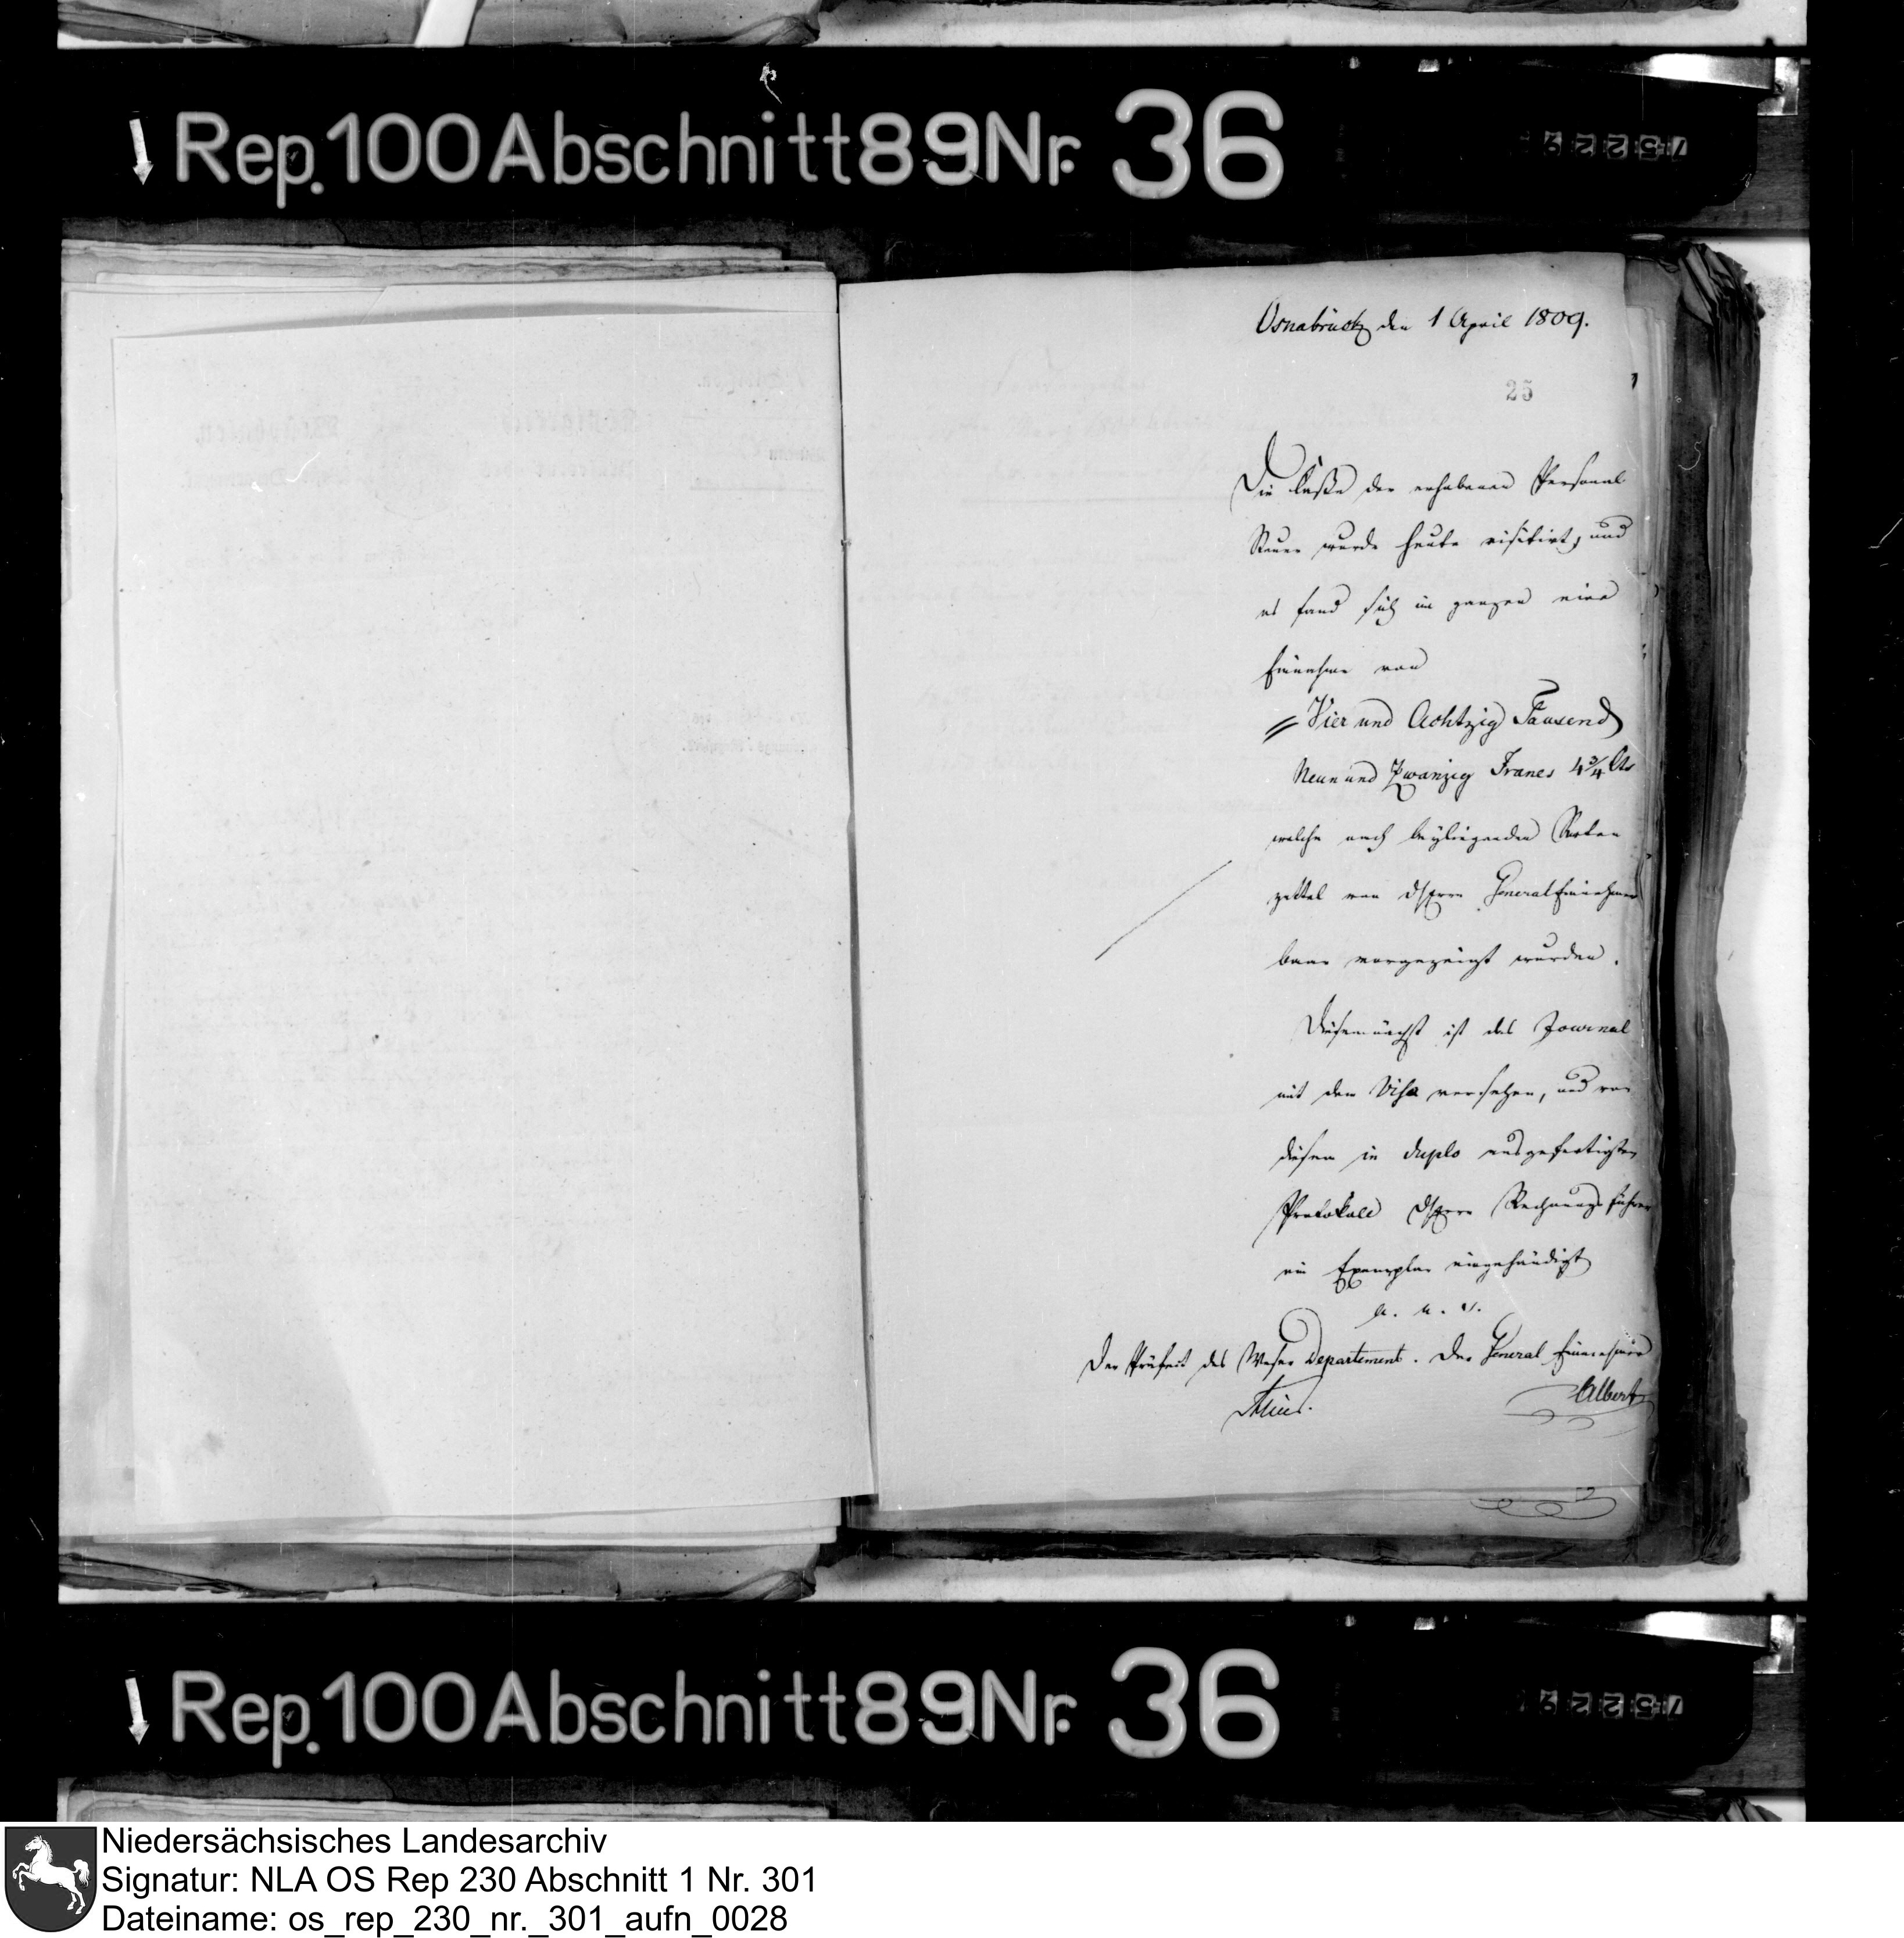 Rep. 100 Abschnitt 89 Nr. 36
75229
Osnabrück den 1 April 1809.
25
Die Casse der erhobenen Personal
Steuer wurde heute visitirt, und
es fand sich im ganzen eine
Einnahme von
Vier und Achtzig Tausend
Neun und Zwanzig Francs 4 3/4 Cts
welche nach beyliegenden Sorten
zettel von dHerrn General Einnehmer
baar vorgezeigt wurden.
Diesemnächst ist das Journal
mit dem Visa versehen, und von
diesem in duplo ausgefertigten
Protokoll dHerrn Rechnungsführer
ein Exemplar eingehändigt
a. u. s.
Der Präfect des Weser Departements. Der General Einnehmer
Albert
Rep. 100 Abschnitt 89 Nr. 36
75229
Niedersächsisches Landesarchiv
Signatur: NLA OS Rep 230 Abschnitt 1 Nr. 301
Dateiname: os_rep_230_nr._301_aufn_0028